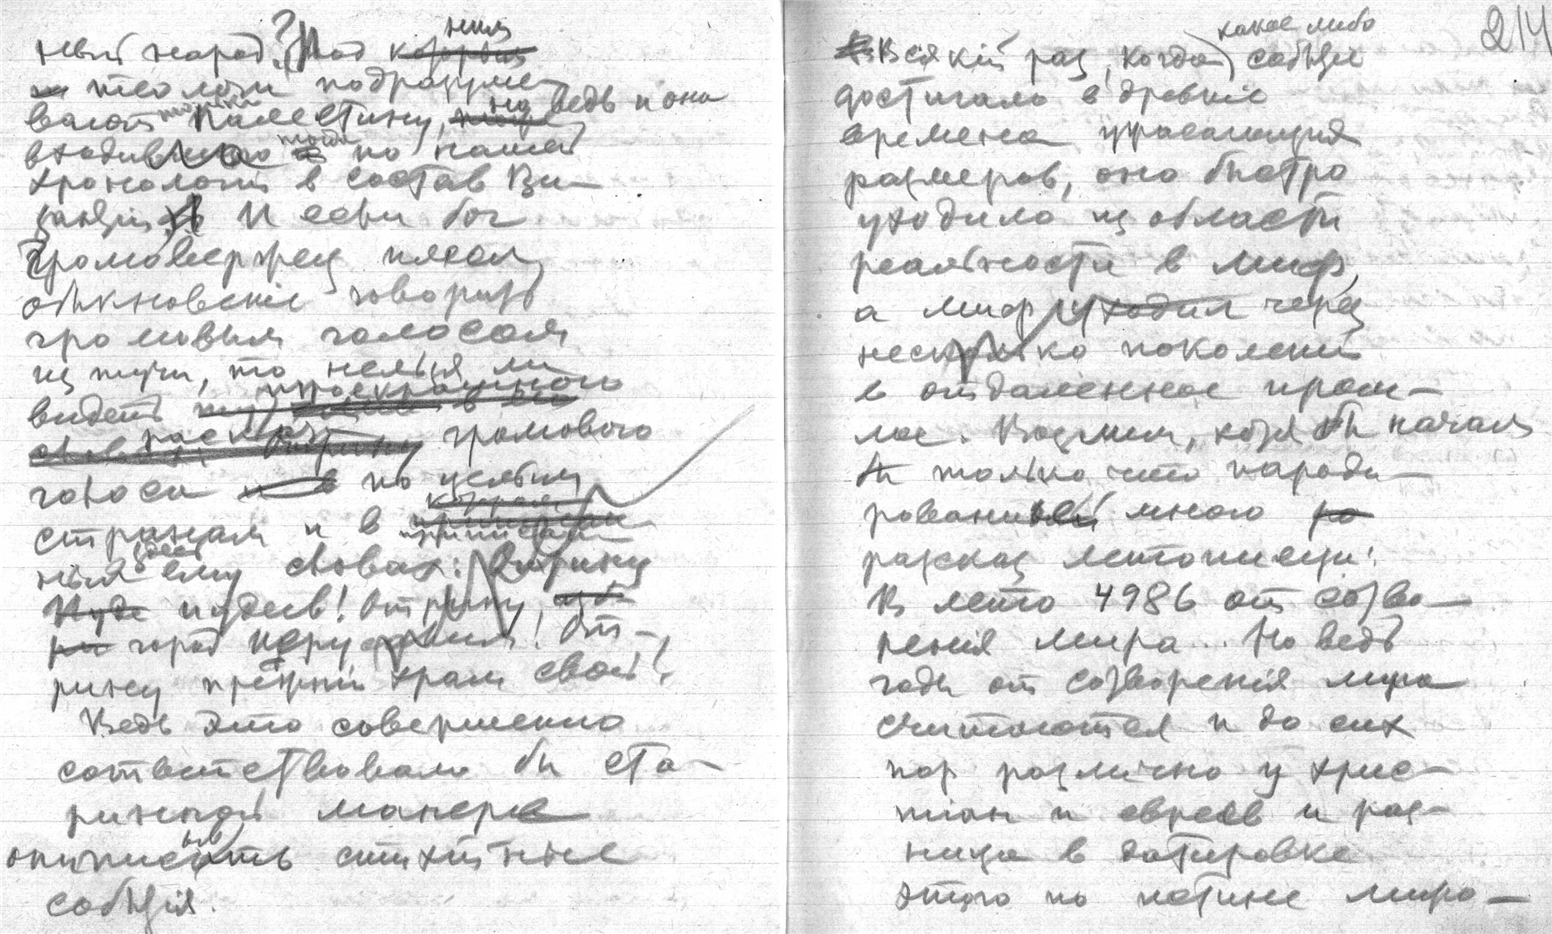 ный народ? Под ним
теологи подразуме-
вают только Палестину, но ведь и она
входила тогда по нашей
хронологии в состав Ви-
зантіи. И если бог
Громовержец
обыкновенно говорит
громовым голосом
из тучи, то нельзя ли
видеть
громового
голоса по целым
странам и в
ему словах: Отрину
іудеев! Отрину
город Іерусалим! От-
рину прежній храм свой!
Ведь это совершенно
соответствовало бы ста-
ринной манере
описывать стихійные
событія.
214
Всякій раз, когда какое либо событіе
достигало в древніе
времена ужасающих
размеров, оно быстро
уходило из области
реальности в миф,
а миф уходил через
несколько поколений
в отдаленное прош-
лое. Возьмем, хотя бы начало
только что пароди-
рованный мною
рассказ летописца:
В лето 4986 от сотво-
ренія мира. Но ведь
годы от сотворенія мира
считаются и до сих
пор различно у хрис-
тиан и евреев и раз-
ница в датировке
этого по истине миро-